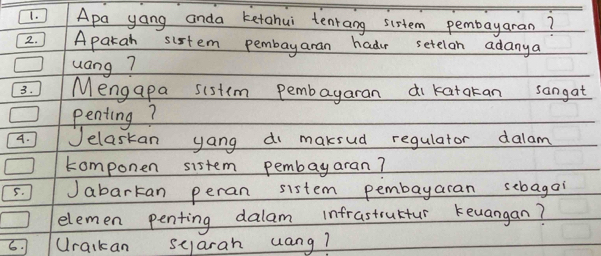 1. Apa yang anda ketahui tentang sistem pembayaran ?
2. Apakah sistem pembayaran hadir setelah adanya
uang ?
3. Mengapa sistem pembayaran di katakan sangat
penting ?
4. Jelaskan yang di maksud regulator dalam
komponen sistem pembayaran ?
5. Jabarkan peran sistem pembayaran sebagai
elemen penting dalam infrastruktur keuangan ?
6. Uraikan sejarah uang ?